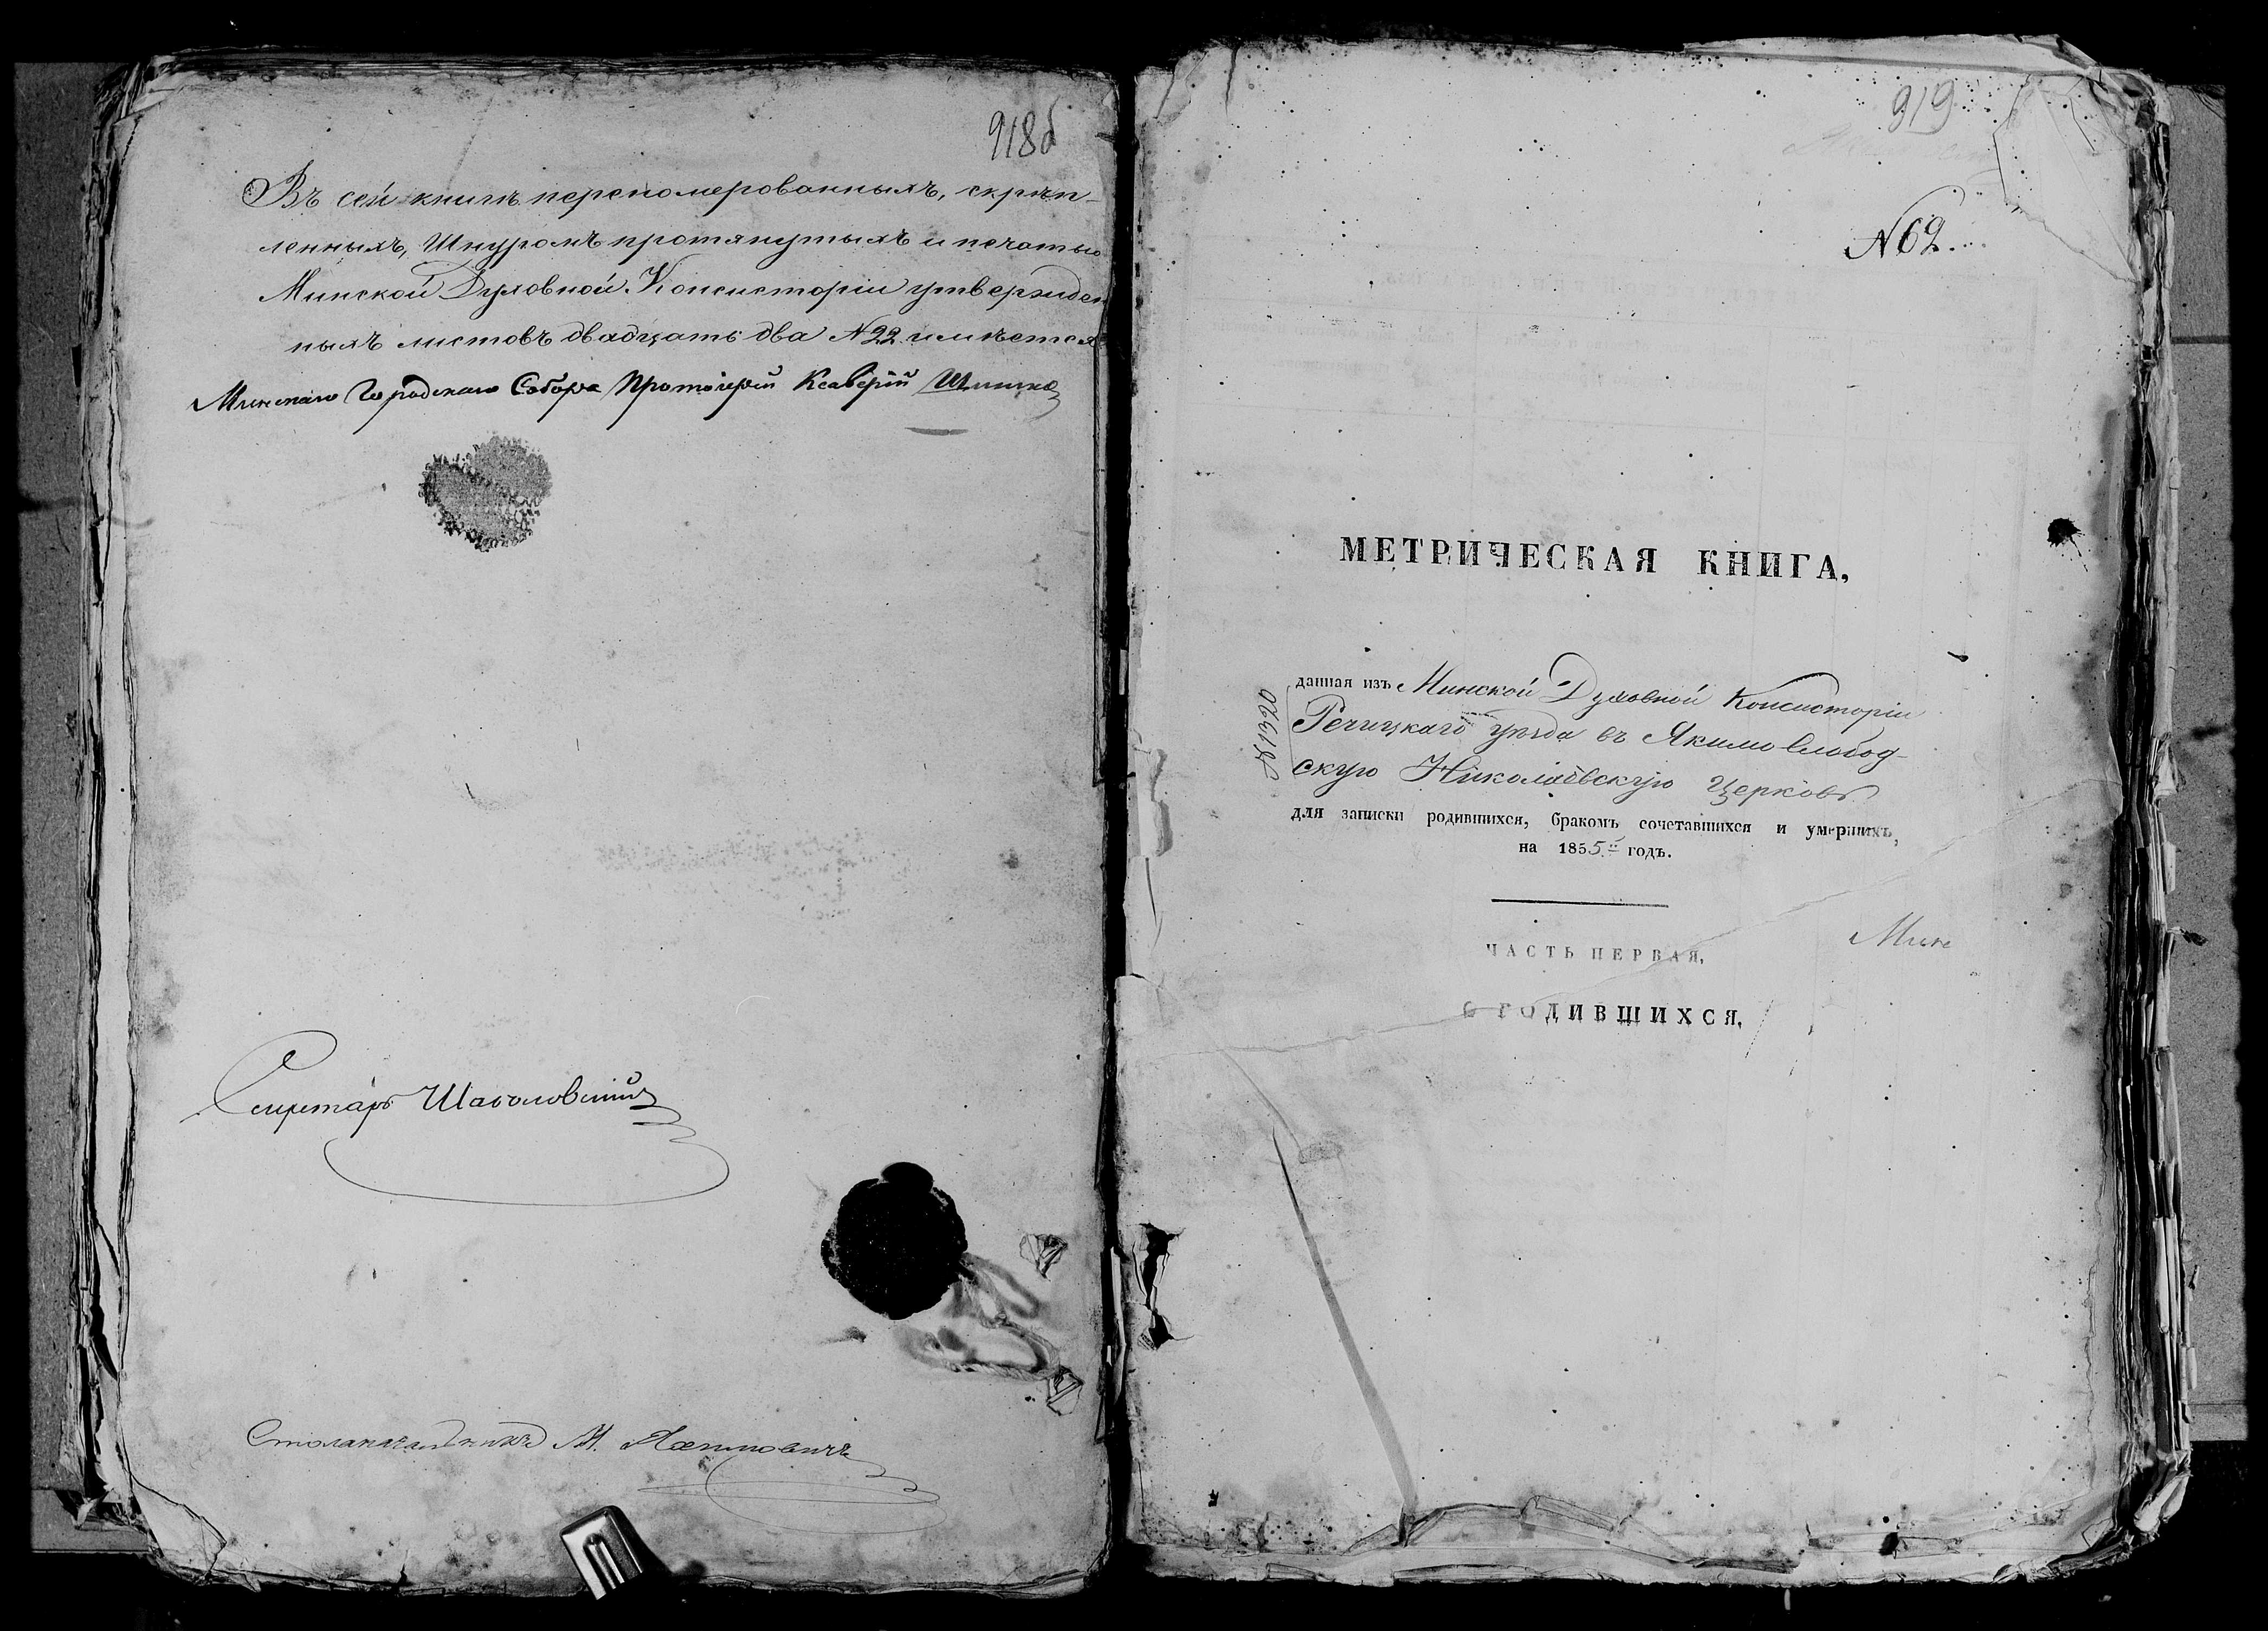 918б
Въ сей книгѣ перепомерованныхъ, скрѣп-
ленныхъ, Шнуромъ протянутыхъ и печатью
Минской Духовной Консисторіи утвержден
ныхъ листовъ двадцать два №22 имѣется
Минскаго Городскаго Собора Протоіерей Ксаверій
Секретарь
Столоначальникъ М.
919
№62.
МЕТРИЧЕСКАЯ КНИГА,
№1320
данная изъ Минской Духовной Консисторіи
Речицкаго уѣзда въ Якимо Слобод-
скую Николаевскую Церковь
для записки родившихся, бракомъ сочетавшихся и умершихъ,
на 1855й годъ.
ЧАСТЬ ПЕРВАЯ,
Мин
О РОДИВШИХСЯ,